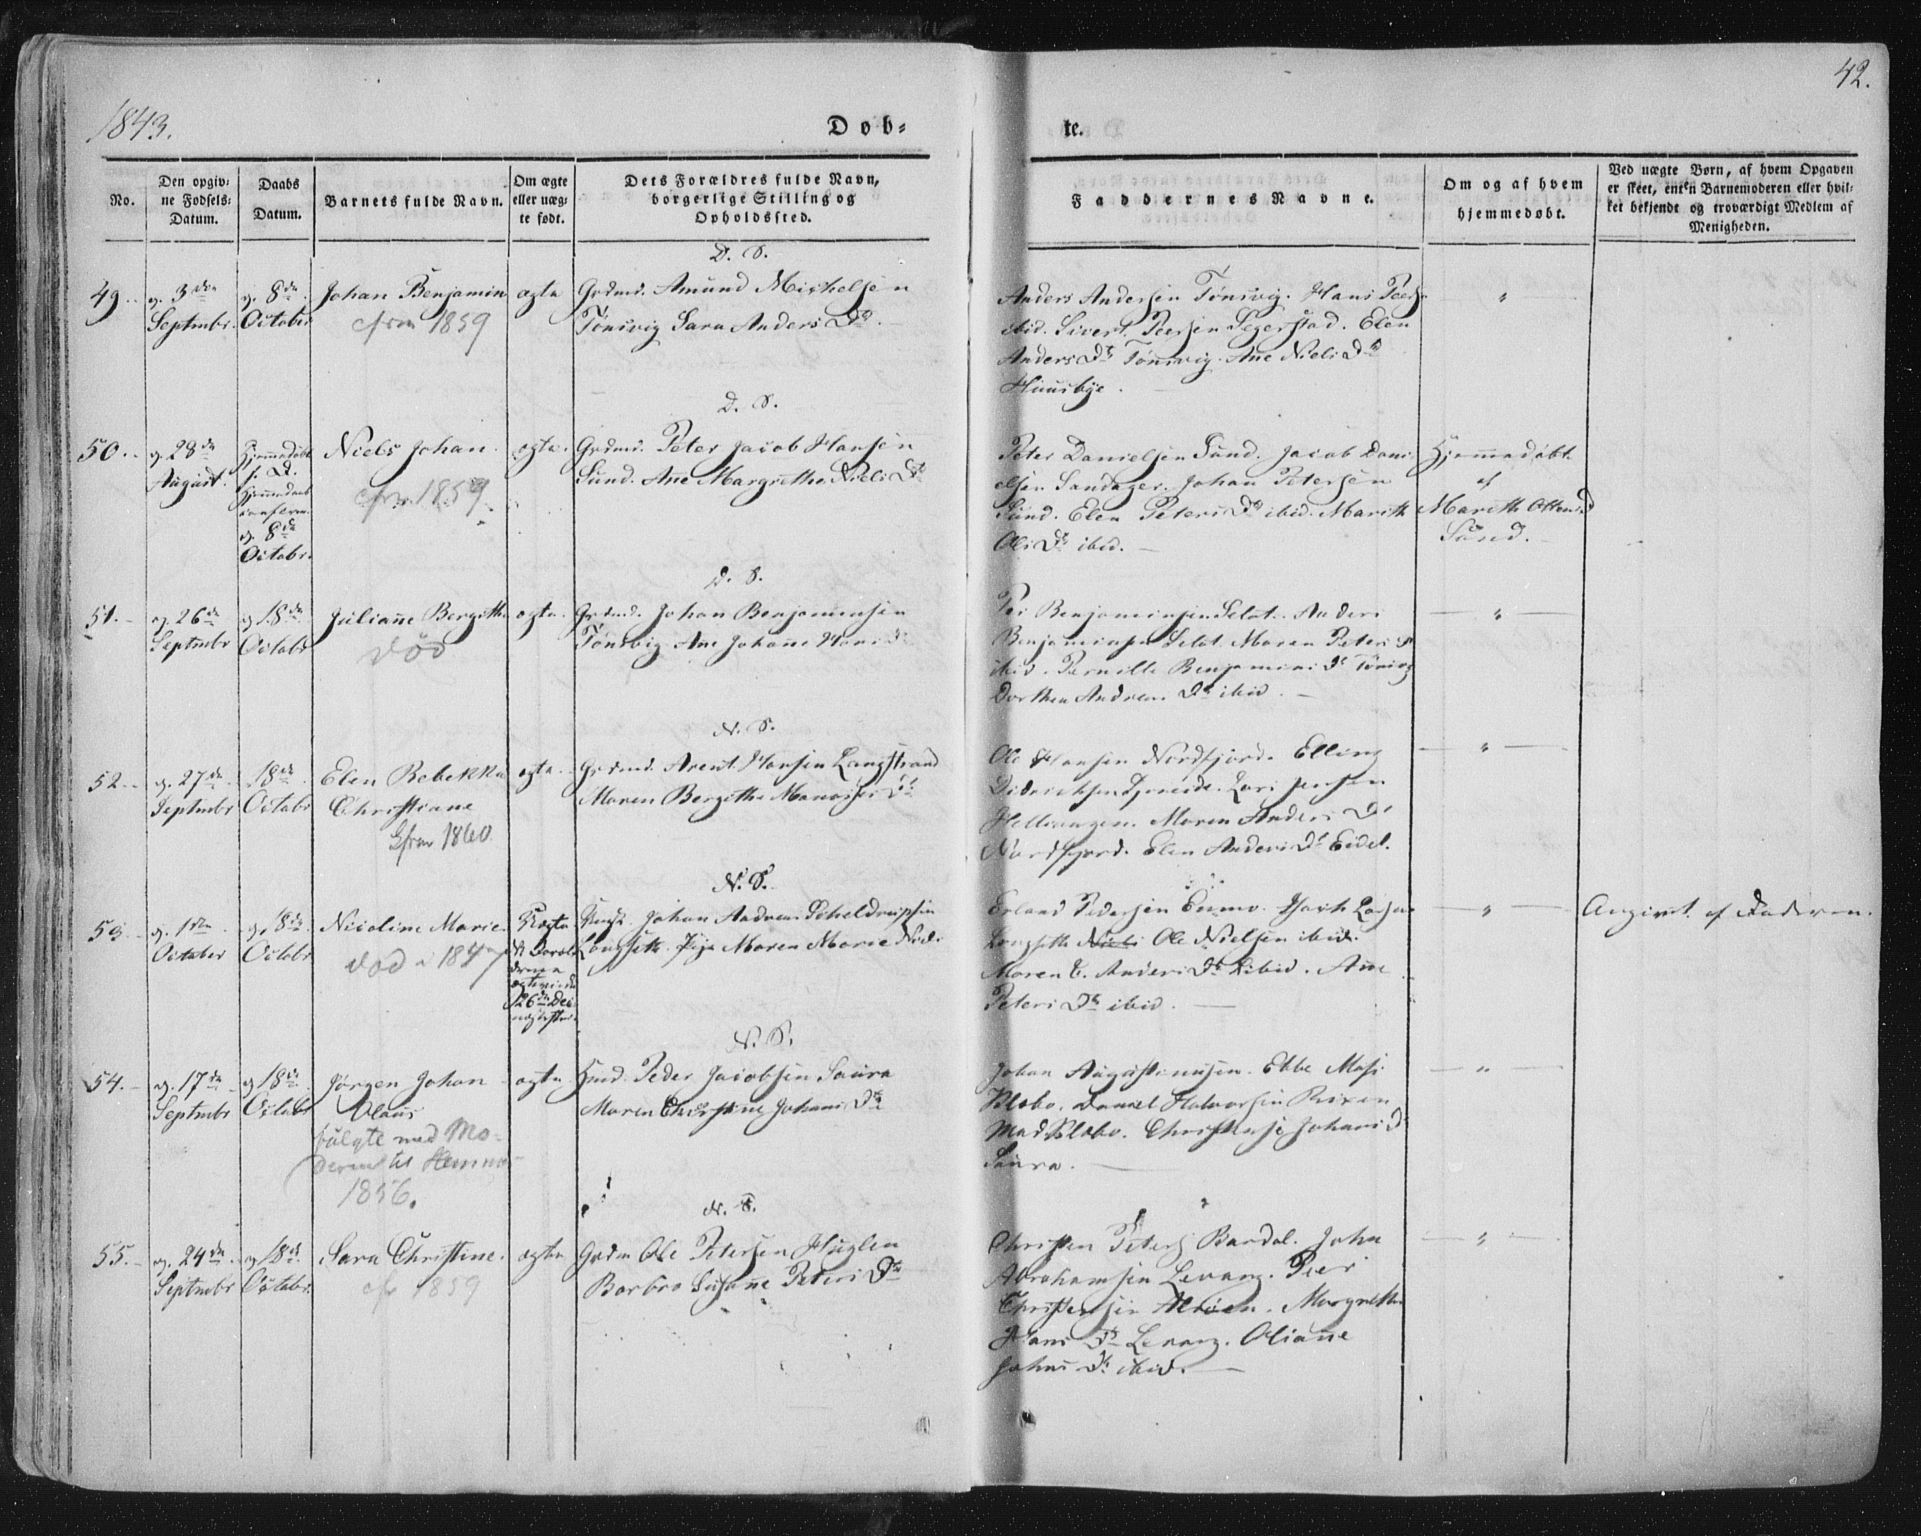 1843.
Døb-
te.
42.
No.
Den opgiv-
ne Fødsels-
Datum.
Daabs
Datum.
Barnets fulde Navn.
Om ægte
eller uæg-
te født.
Dets Forældres fulde Navn,
borgerlige Stilling og
Opholdssted.
Faddernes Navne.
Om og af hvem
hjemmedøbt.
Ved uægte Børn, af hvem Opgaven
er skeet, enten Barnemoderen eller hvil-
ket bekjendt og troværdigt Medlem af
Menigheden.
D. S.
49.
d. 3die
Septmbr.
d. 8de
October
Johan Benjamin
cfrm 1859
ægte
Grdmd. Amund Michelsen
Tønsvig Sara Anders Dtr.
Anders Andersen Tønsvig. Hans Peers.
ibid. Sivert Peersen Segerstad. Elen
Anders Dtr Tønsvig. Ane Niels Dtr
Huusbye.
"
D. S.
50.
d. 28de
August.
Hjemmedøbt
conferm.
d. 8de
Octobr.
Niels Johan
cfrm. 1859
ægte.
Grdmd. Peter Jacob Hansen
Sund. Ane Margrethe Niels Dtr
Peter Danielsen Sund. Jacob Dani-
elsen Sandager. Johan Petersen
Sund. Elen Peters Dtr ibid. Marith
Ols Dtr ibid.
Hjemmedøbt
af
Marith Ottens D
Sund.
D. S.
51.
d. 26de
Septmbr
d. 18de
Octobr
Juliane Bergithe
død
ægte.
Grdmd. Johan Benjaminsen
Tønsvig Ane Johane Hans D
Per Benjaminsen Selot. Anders
Benjaminsen Selot. Maren Peters D
ibid. Pernille Benjamins Dr Tønsvig
Dorthea Andreas Dtr ibid.
"
N. S.
52.
d. 27de
Septmbr
18de
Octobr
Elen Rebekka
Christiane
Cfrm 1860
ægte
Grdmd. Arent Hansen Langstrand
Maren Bergithe Dtr
Ole Hansen Nordfjord. Elling
Didriksen Lars Jensen
Maren Anders Dr
Nordfjord. Elen Anders Dr Eidet.
"
N. S.
53.
d. 1ste
October
d. 18de
Octobr
Nicoline Marie
død 1847
Uægte
Johan Andreas Scheldrupsen
Langseth. Pige Maren Marie Niels
Erland Pedersen Larsen
Langseth Niels Ole Nielsen ibid.
Maren E. Anders Dtr ibid. Ane
Peters Dtr ibid.
"
Angivet af Faderen.
N. S.
54.
d. 17de
Septmbr
d. 18de
Octobr
Jørgen Johan
Olaus
fulgte med Mo-
deren til Hemnæs
1856.
ægte
Hmd. Peder Jacobsen Saura
Maren Christine Johans Dtr
Johan Augustinusen. Ebbe Mos.
Klobo. Daniel Halvorsen
Mads Klobo. Johans D
Saura.
"
N. S.
55.
d. 24de
Septmbr
d. 18de
Octobr.
Sara Christine.
cfr 1859
ægte
Grdm Ole Petersen Huglen
Barbro Susane Peters Dtr
Christen Peters. Bardal. John
Abrahamsen Levang. Peer
Christensen Alsöen. Margrethe
Hans Dtr Levang. Oliane
Johns Dtr ibid.
"